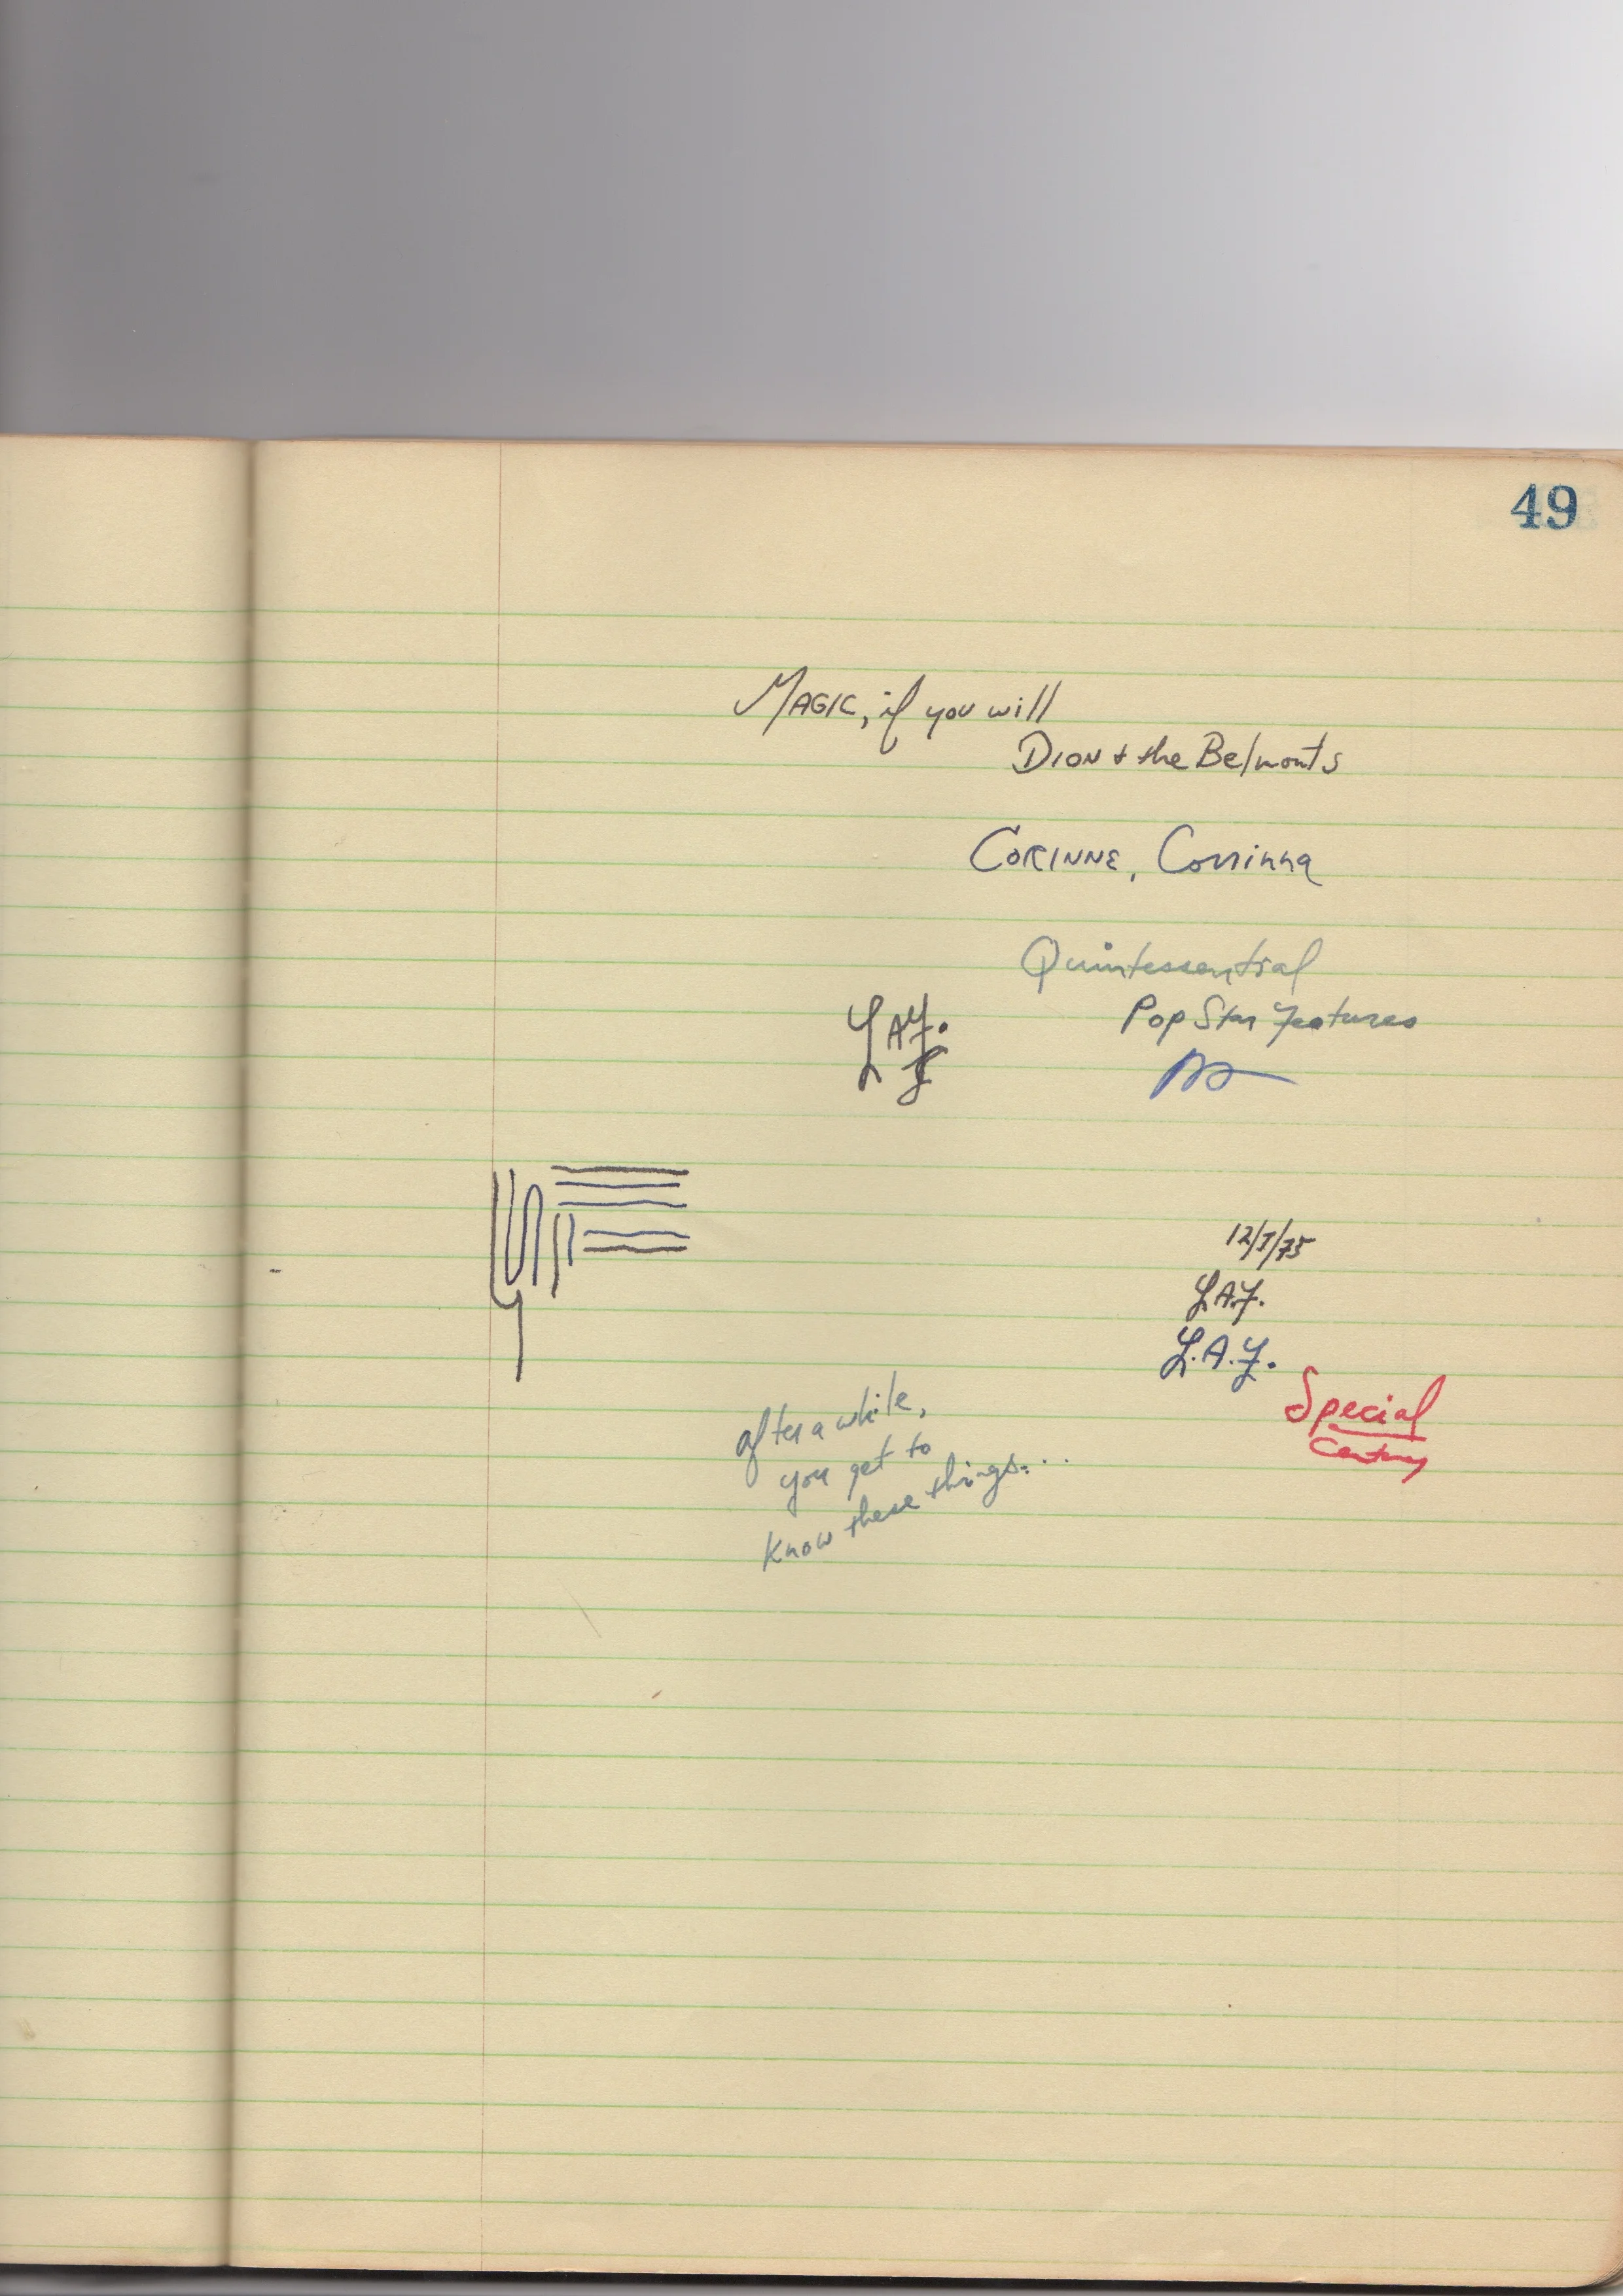 49
MAGIC, if you will
DION + the Belmonts
CORINNE, Corrinna
Quintessential
Pop Star Features
L.A.F.
12/1/75
L.A.F.
L.A.F.
Special
Century
after a while,
you get to
know these things...